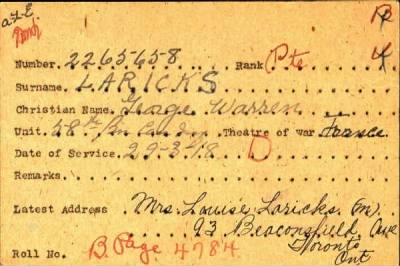 a.F.E. R
4
Number. 2265658 Rank Pte
Surname. LARICKS
Christian Name. George Warren
Unit. 58th Bn Theatre of war. France
Date of Service. 29-3-18 D
Remarks.
Latest Address Mrs. Louise Laricks (m)
93 Beaconsfield Ave
Toronto
Ont
Roll No. B. Page 4784